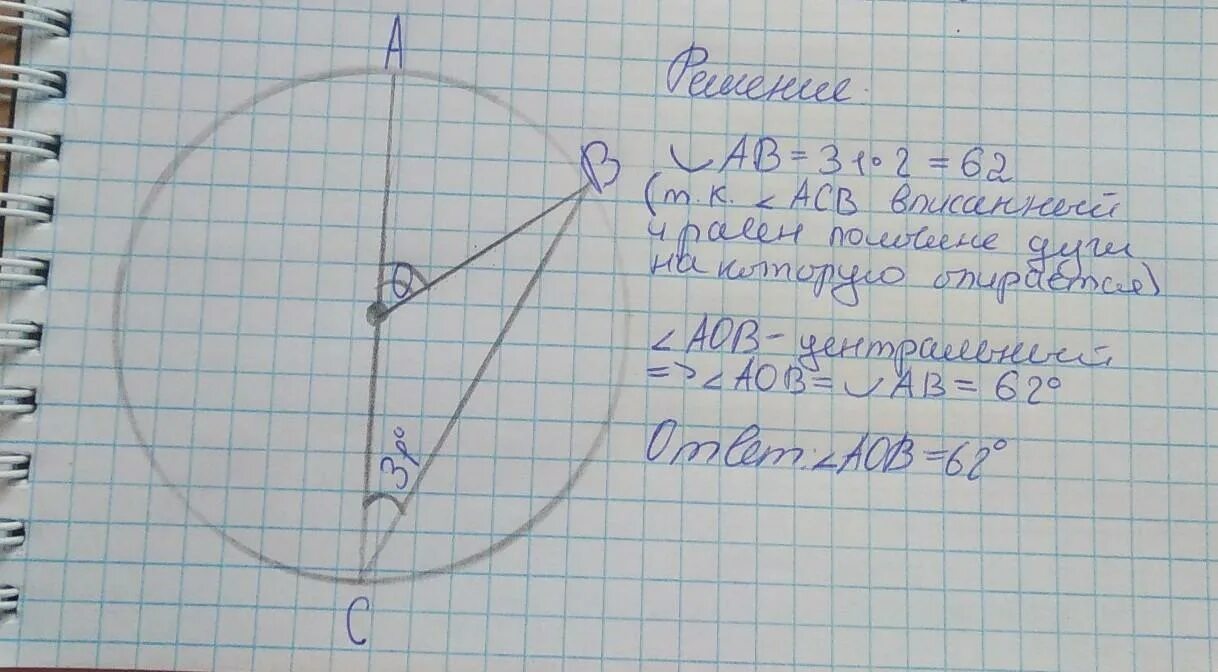 A
B
31°
C
Решение:
◡AB = 31∘2 = 62
(т.к. ∠ACB вписанный
и равен половине дуги
на которую опирается)
∠AOB - центральный
=> ∠AOB = ◡AB = 62°
Ответ: ∠AOB = 62°